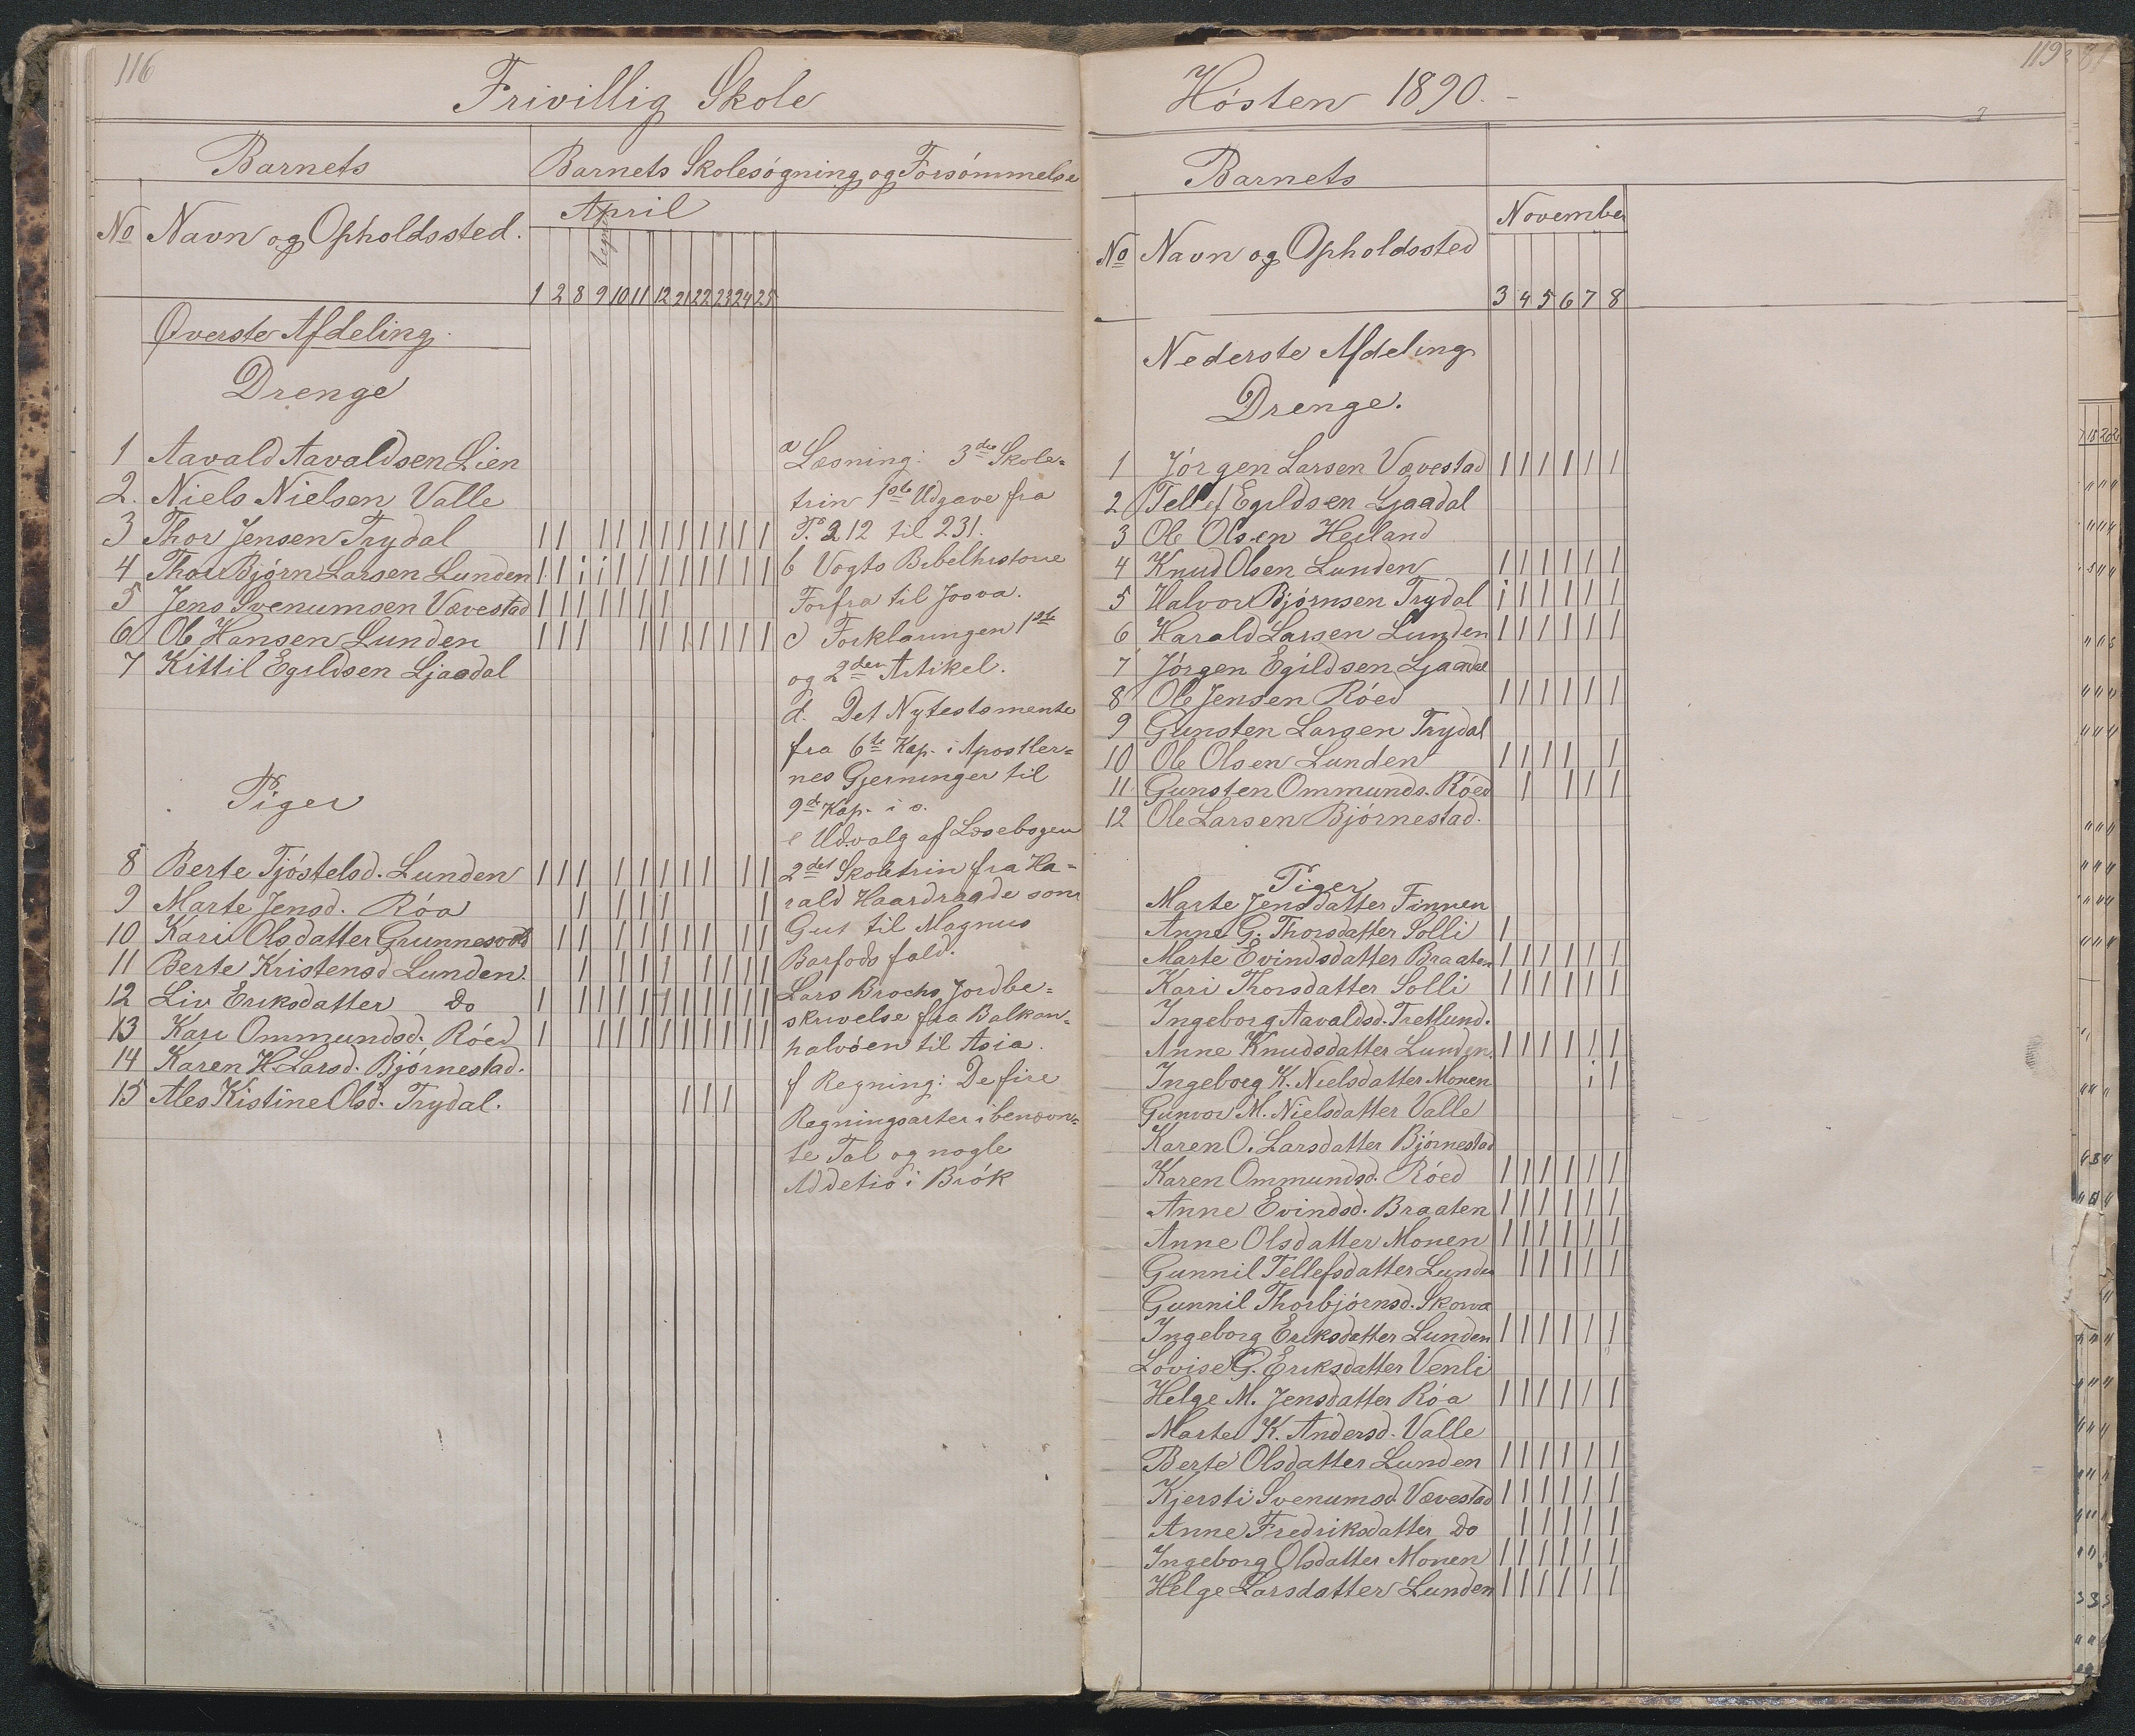 116
Frivillig Skole
Barnets
Barnets Skolesøgning og Forsømmelse
No Navn og Opholdssted.
April
1 2 8 9 10 11 12 21 22 23 24 25
Øverste Afdeling.
Drenge
1 Aavald Aavaldsen Lien
2. Niels Nielsen Valle
3 Thor Jensen Trydal
4 Thor Bjørn Larsen Lunden
5 Jens Svenumsen Vævestad
6 Ole Hansen Lunden
7 Kittil Egildsen Ljaadal
Piger
8 Berte Tjøstelsd. Lunden
9 Marte Jensd. Róa
10 Kari Olsdatter Grunnesvold
11 Berte Kristensd Lunden.
12 Liv Eriksdatter do
13 Kari Ommundsd. Róed
14 Karen H. Larsd. Bjørnestad.
15 Ales Kistine Olsd. Trydal.
a Læsning: 3die Skole=
trin 1ste Udgave fra
P. 212 til 231.
b Vogts Bibelhistorie
Forfra til Josva.
c Forklaringen 1ste
og 2den Artikel.
d. Det Nytestamente
fra 6te Kap. i Apostler=
nes Gjerninger til
9de Kap. i s.
e Udvalg af Læsebogen
2det Skoletrin fra Ha=
rald Haardraade som
Gut til Magnus
Barfods fald.
Lars Brochs Jordbe=
skrivelse fra Balkan=
halvøen til Asia.
f Regning: De fire
Regningsarter i benævn=
te Tal og nogle
Addetio i Brók
119
Høsten 1890.-
Barnets
No Navn og Opholdssted
November
3 4 5 6 7 8
Nederste Afdeling
Drenge.
1 Jørgen Larsen Vævestad
2 Tellef Egildsen Ljaadal
3 Ole Olsen Heiland
4 Knud Olsen Lunden
5 Halvor Bjørnsen Trydal
6 Harald Larsen Lunden
7 Jørgen Egildsen Ljaadal
8 Ole Jensen Róed
9 Gunsten Larsen Trydal
10 Ole Olsen Lunden
11 Gunsten Ommunds. Róed
12 Ole Larsen Bjørnestad.
Piger
Marte Jensdatter Finnen
Anne G. Thorsdatter Solli
Marte Evindsdatter Braaten
Kari Thorsdatter Solli
Ingeborg Aavaldsd. Tretlund.
Anne Knudsdatter Lunden.
Ingeborg K. Nielsdatter Monen
Gunvor M. Nielsdatter Valle
Karen O. Larsdatter Bjørnestad
Karen Ommundsd. Róed
Anne Evindsd. Braaten
Anne Olsdatter Monen
Gunnil Tellefsdatter Lunden
Gunnil Thorbjørnsd. Skorva
Ingeborg Eriksdatter Lunden
Lovise G. Eriksdatter Venli
Helge M. Jensdatter Róa
Marte K. Andersd. Valle
Berte Olsdatter Lunden
Kjersti Svenumsd. Vævestad
Anne Fredriksdatter do
Ingeborg Olsdatter Monen
Helge Larsdatter Lunden